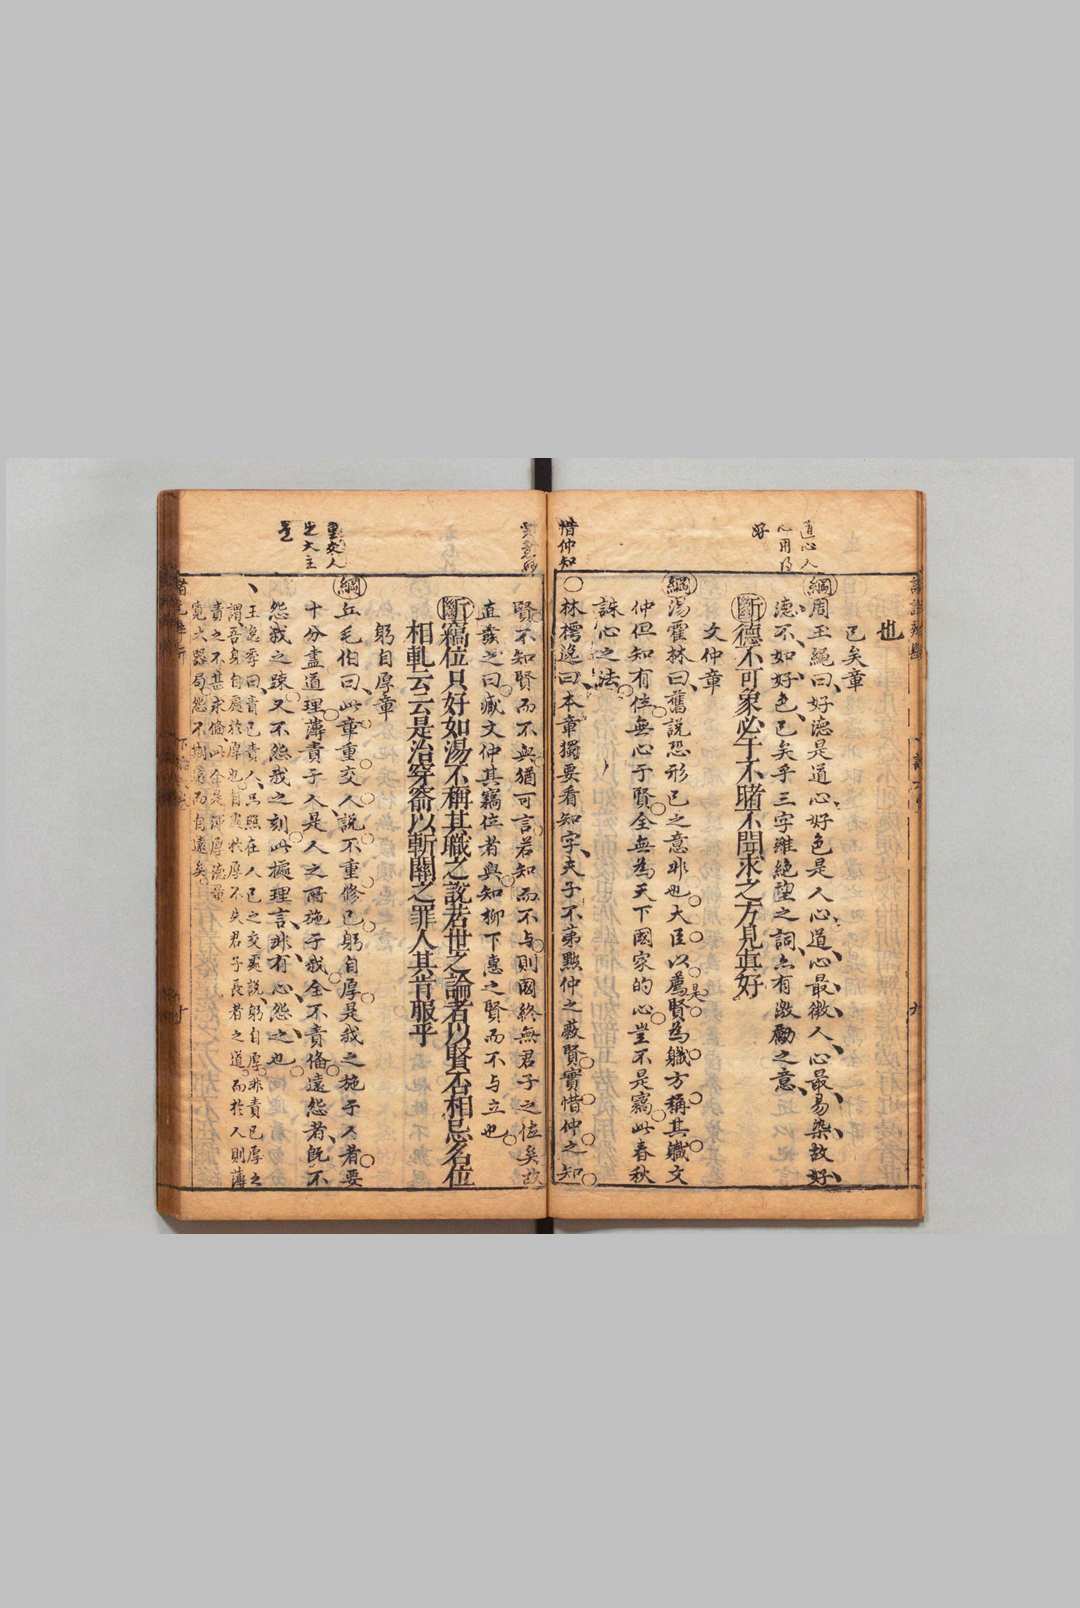 道心人
心用皮
好
惜仲知
也
已矣章
綱周玉繩曰好德是道心好色是人心道心最微人心最易染故好
德不如好色已矣乎三字雖絕望之詞亦有激勵之意
斷德不可象必于不睹不聞求之方見真好
文仲章
綱湯霍林曰舊說恐形己之意非也大臣以薦賢為職方稱其職文
仲但知有位無心于賢全無為天下國家的心豈不是竊此春秋
誅心之法
○林樗逸曰本章獨要看知字夫子不第點仲之蔽賢實惜仲之知
賢不知賢而不與猶可言若知而不与則國終無君子之位矣故
直裁之曰臧文仲其竊位者與知柳下惠之賢而不与立也
斷竊位只好如湯不稱其職之說若世之論者以賢否相忌名位
相軋云云是治穿窬以斬關之罪人其肯服乎
躬自厚章
綱丘毛伯曰此章重交人說不重修己躬自厚是我之施于人者要
十分盡道理薄責于人是人之所施于我全不責備遠怨者既不
怨我之疎又不怨我之刻此據理言非有心怨之也
王逸季曰責己責人只照在人己之交更說躬自厚非責己厚之
謂吾身自處於厚也自處於厚不失君子長者之道而於人則薄
責之不甚求備此全是渾厚德器
寬大器局怨不期遠而自遠矣
重交人
之大主
意